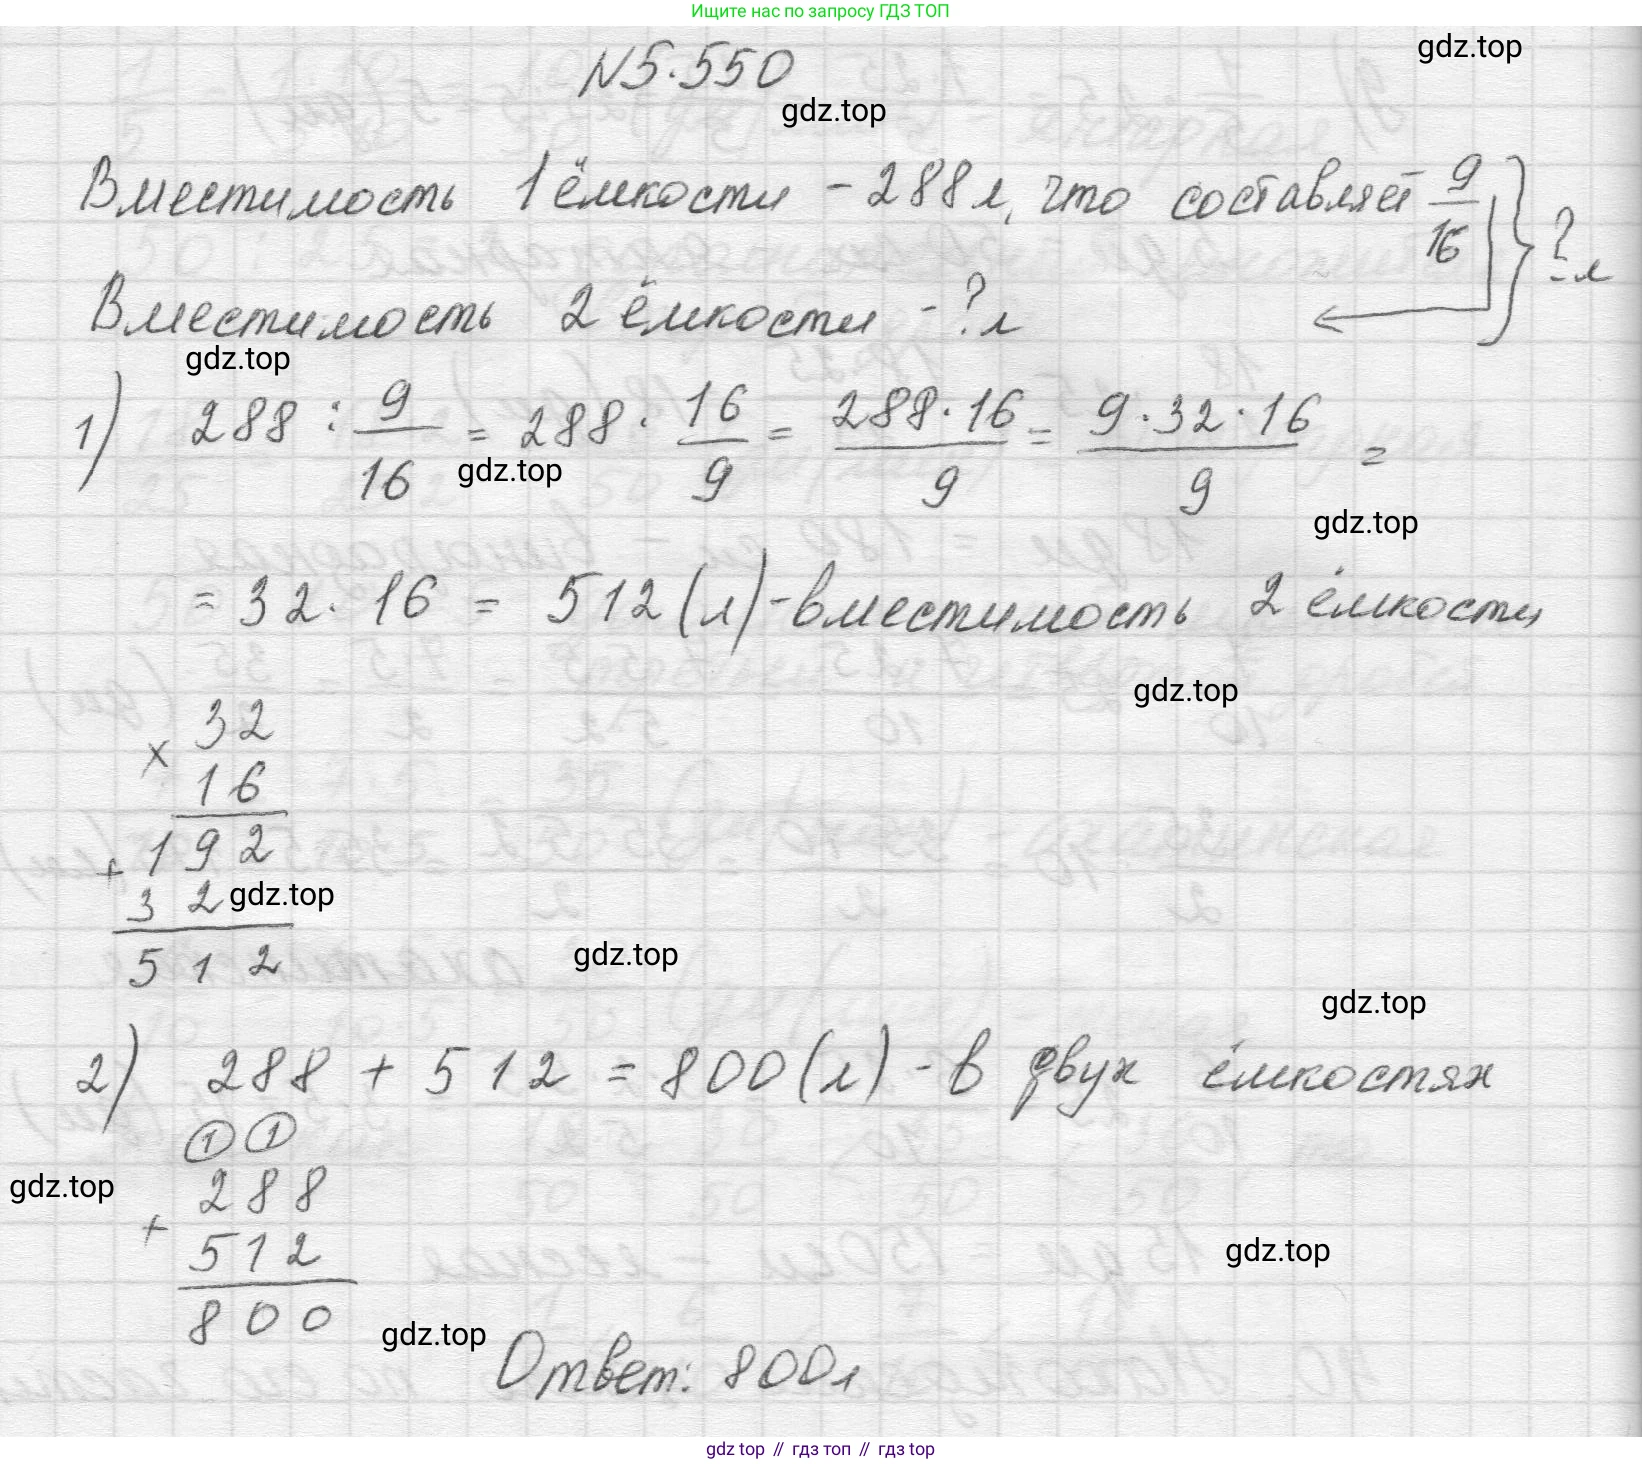 Ищите нас по запросу ГДЗ ТОП
gdz.top
N5.550
gdz.top
Вместимость 1 ёмкости - 288 л, что составляет 9/16 } ? л
Вместимость 2 ёмкости - ? л
gdz.top
1) 288 : 9/16 = 288 · 16/9 = 288·16/9 = 9·32·16/9 =
gdz.top
gdz.top
= 32 · 16 = 512 (л) - вместимость 2 ёмкости
gdz.top
32
×
16
192
+
32
gdz.top
512
gdz.top
gdz.top
2) 288 + 512 = 800 (л) - в двух ёмкостях
1 1
gdz.top
288
+
512
gdz.top
800
gdz.top
Ответ: 800 л
gdz top // гдз топ // gdz top